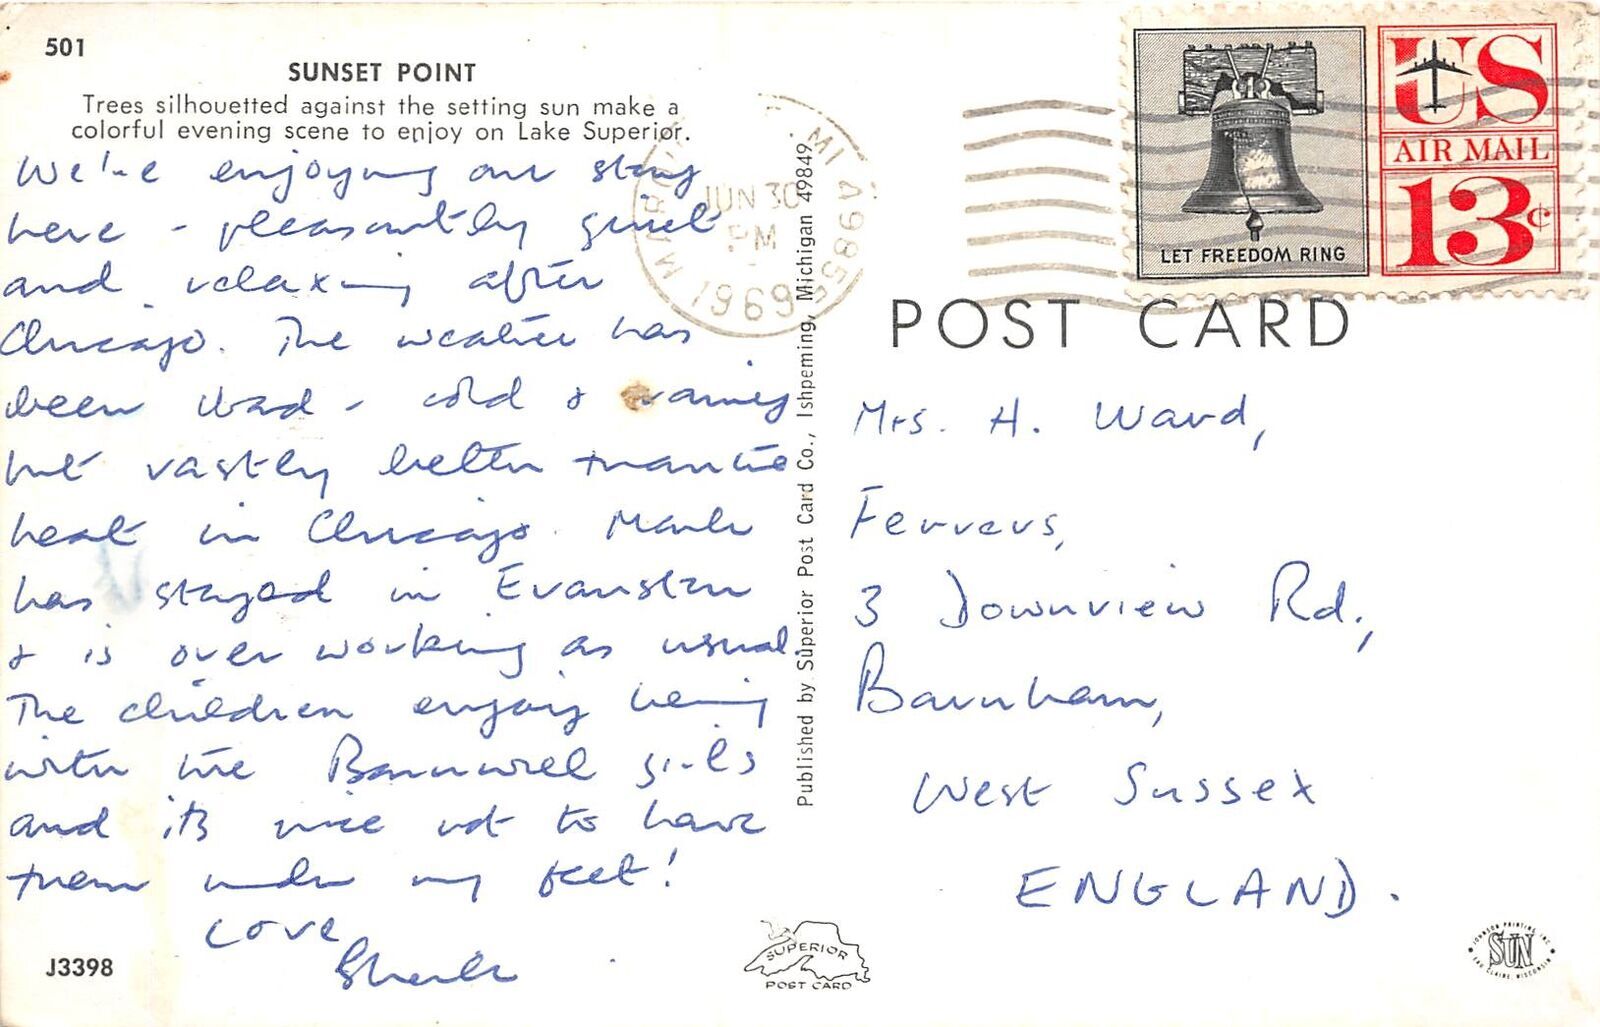 501
SUNSET POINT
Trees silhouetted against the setting sun make a
colorful evening scene to enjoy on Lake Superior.
We're enjoying our stay
here - pleasantly quiet
and relaxing after
Chicago. The weather has
been bad - cold & rainy
but vastly better than the
heat in Chicago.
has stayed in Evanston
& is over working as usual.
The children enjoy being
with the Barnwell girls
and it's nice not to have
them under my feet!
Love
J3398
Published by Superior Post Card Co., Ishpeming, Michigan 49849
MI 49855
JUN 30
PM
1969
LET FREEDOM RING
US
AIR MAIL
13¢
POST CARD
Mrs. H. Ward,
Ferrers,
3 Downview Rd.,
Barnham,
West Sussex
ENGLAND.
SUPERIOR
POST CARD
JOHNSON PRINTING, INC.
SUN
EAU CLAIRE, WISCONSIN